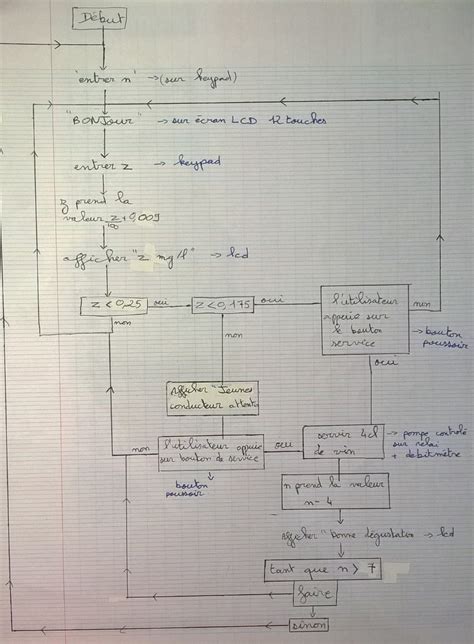 Début
"entrer n" → (sur keypad)
"BONJour" → sur écran LCD 12 touches
entrer z → keypad
z prend la
valeur z/100 + 0,009
afficher "z mg/l" → lcd
z < 0,25
oui
z < 0,175
oui
l'utilisateur
appuie sur
le bouton
service
non
→ bouton
poussoir
non
non
oui
Afficher "Jeunes
conducteur attenti
non
l'utilisateur appuie
sur bouton de service
oui
servir 4cl
de vin
→ pompe contrôlé
sur relai
+ débitmètre
bouton
poussoir
n prend la valeur
n - 4
Afficher "bonne dégustation → lcd
tant que n > 7
faire
sinon